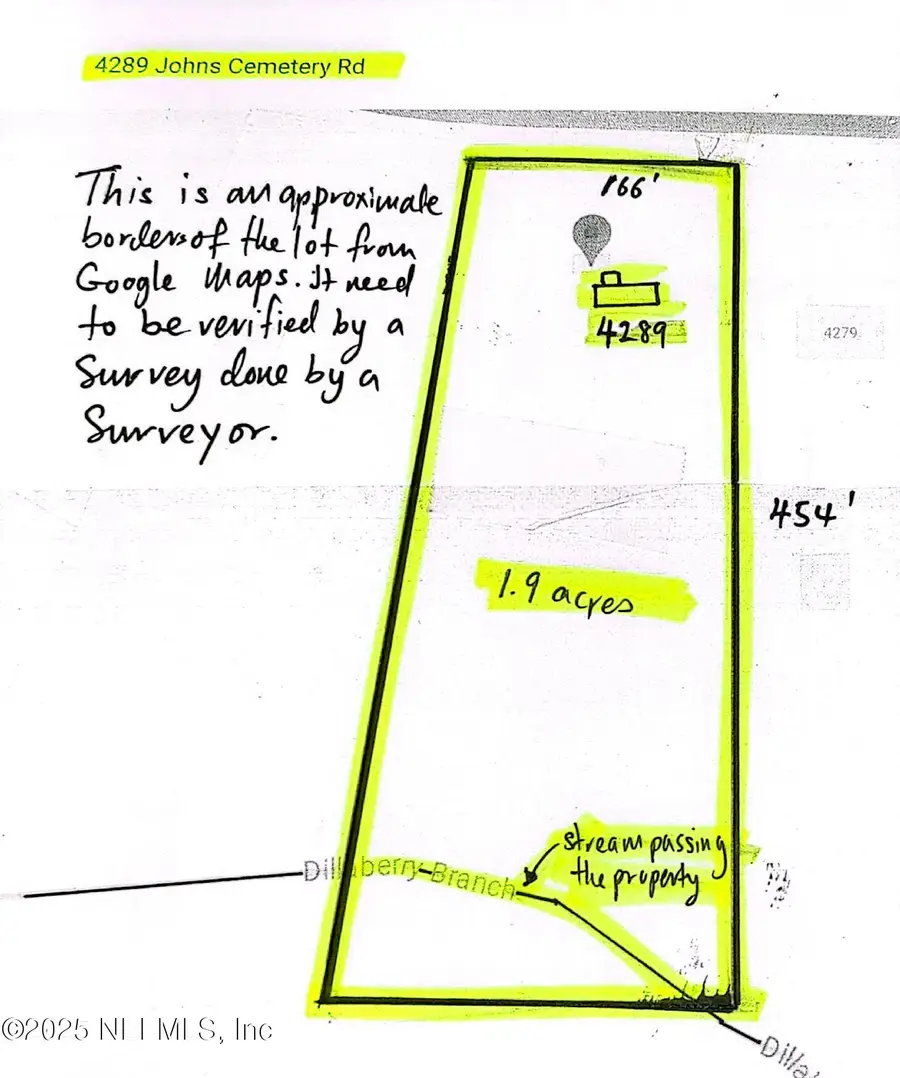 4289 Johns Cemetery Rd
This is an approximate
borders of the lot from
Google Maps. It need
to be verified by a
Survey done by a
Surveyor.
166'
4289
4279
454'
1.9 acres
stream passing
the property
Dillaberry Branch
©2025 NEFMLS, Inc
Dilla